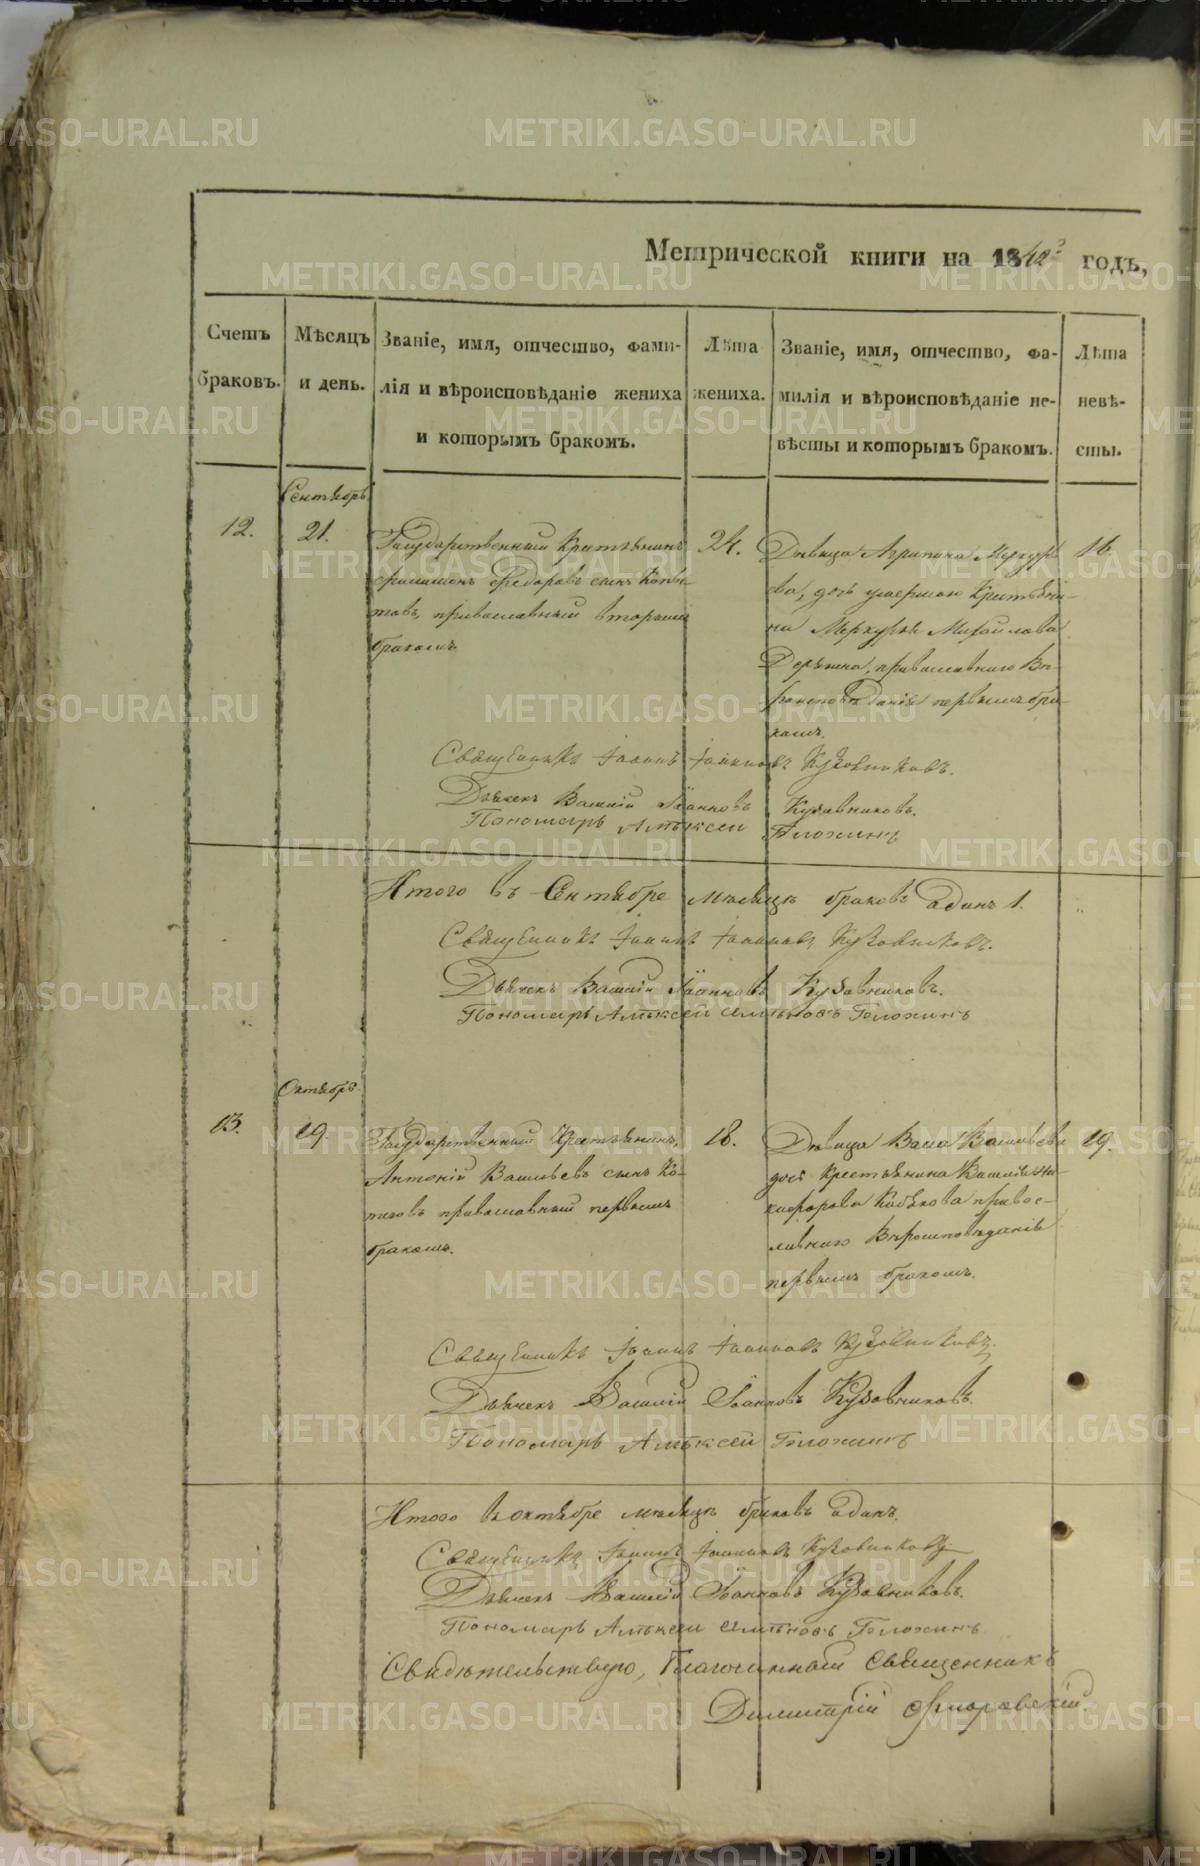 Метрической книги на 1842 годъ,
Счетъ браковъ.
Мѣсяцъ и день.
Званіе, имя, отчество, фами-
лія и вѣроисповѣданіе жениха
и которымъ бракомъ.
Лѣта жениха.
Званіе, имя, отчество, фа-
милія и вѣроисповѣданіе не-
вѣсты и которымъ бракомъ.
Лѣта невѣ-
сты.
Сентябрь
12.
21.
Государственный Крестьянинъ
Филимонъ Федоровъ сынъ
православный вторымъ
бракомъ
24.
Дѣвица Агрипина Меркурь
ева, дочь умершаго Крестьяни-
на Меркурья Михайлова
православнаго Вѣ-
роисповѣданія первымъ бра-
комъ.
16.
Священникъ Іоаннъ Іоанновъ Кузовниковъ.
Дьячекъ Василій Іоанновъ Кузовниковъ.
Пономарь Алѣксей
Итого въ Сентябре месяце браковъ одинъ 1.
Священникъ Іоаннъ Іоанновъ Кузовниковъ.
Дьячекъ Василій Іоанновъ Кузовниковъ.
Пономарь Алѣксей Семѣновъ
Октябрь
13.
19.
Государственный Крестьянинъ
Антоній Васильевъ сынъ Ко-
православный первымъ
бракомъ.
18.
Дѣвица Васса Васильева
дочь Крестьянина Василья Ни-
кифорова православ-
наго Вѣроисповѣданія
первымъ бракомъ.
19.
Священникъ Іоаннъ Іоанновъ Кузовниковъ.
Дьячекъ Василій Іоанновъ Кузовниковъ.
Пономарь Алѣксей
Итого в октябре месяце браковъ одинъ.
Священникъ Іоаннъ Іоанновъ Кузовниковъ
Дьячекъ Василій Іоанновъ Кузовниковъ.
Пономарь Алѣксей Семѣновъ
Свидѣтельствую, Благочинный Священникъ
Димитрій Флоровскій.
METRIKI.GASO-URAL.RU